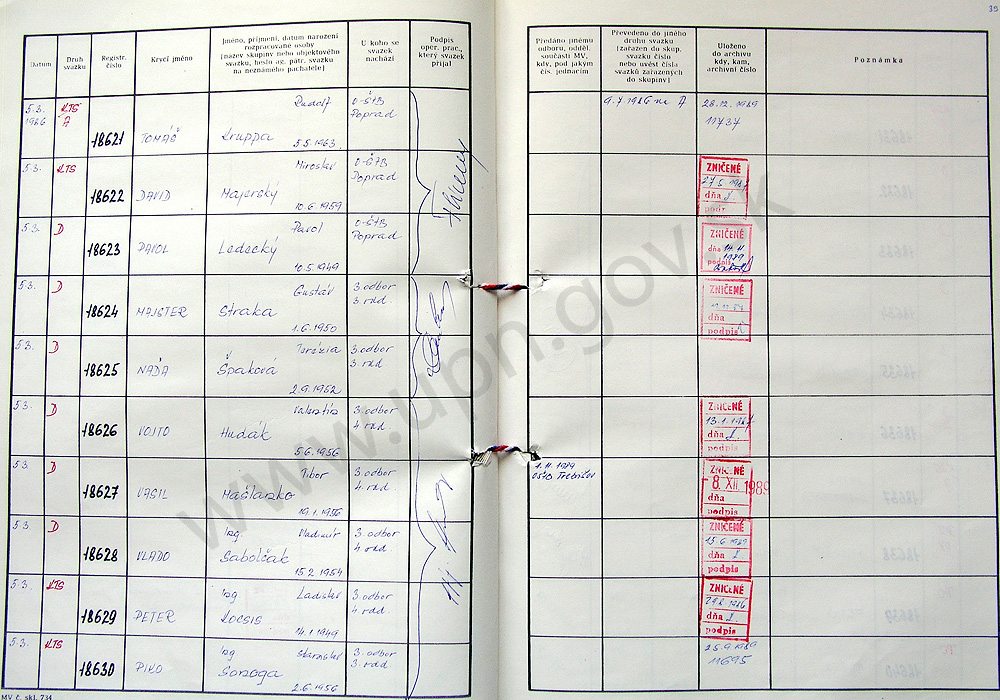 39
Datum
Druh svazku
Registr. číslo
Krycí jméno
Jméno, příjmení, datum narození
rozpracované osoby
(název skupiny nebo objektového
svazku, heslo ag. pátr. svazku
na neznámého pachatele)
U koho se
svazek
nachází
Podpis
oper. prac.,
který svazek
přijal
Předáno jinému
odboru, odděl.
součásti MV,
kdy, pod jakým
čís. jednacím
Převedeno do jiného
druhu svazku
(zařazen do skup.
svazku číslo
nebo uvést čísla
svazků zařazených
do skupiny)
Uloženo
do archivu
kdy, kam,
archivní číslo
Poznámka
5.3. 1986 KTS A 18621 TOMÁŠ Rudolf Kruppa 5.5.1963 O-ŠTB Poprad 9.7.1986 na A 28.12.1989 11737
5.3. KTS 18622 DAVID Miroslav Majerský 10.6.1959 O-ŠTB Poprad ZNIČENÉ dňa
5.3. D 18623 PAVOL Pavol Ledecký 10.5.1949 O-ŠTB Poprad ZNIČENÉ dňa 14.11 1989 podpis
5.3. D 18624 MAJSTER Gustáv Straka 1.6.1950 3.odbor 3.odd ZNIČENÉ dňa podpis
5.3. D 18625 NAĎA Terézia Špaková 2.9.1962 3.odbor 3.odd
5.3. D 18626 VOJTO Valentín Hudák 5.6.1956 3.odbor 4.odd ZNIČENÉ dňa podpis
5.3. D 18627 VASIL Tibor 19.1.1956 3.odbor 4.odd. 1.11.1989 Trebišov ZNIČENÉ -8. XII. 1989 dňa podpis
5.3. D 18628 VLADO Ing. Vladimír Sabolčák 15.2.1954 3.odbor 4.odd ZNIČENÉ 15.6.1989 dňa podpis
5.3. KTS 18629 PETER Ing Ladislav Kocsis 14.1.1949 3.odbor 4.odd. ZNIČENÉ dňa podpis
5.3. KTS 18630 PIKO Ing Stanislav 2.6.1956 3.odbor 3.odd 25.9.1989 11695
MV č. skl. 734
www.upn.gov.sk